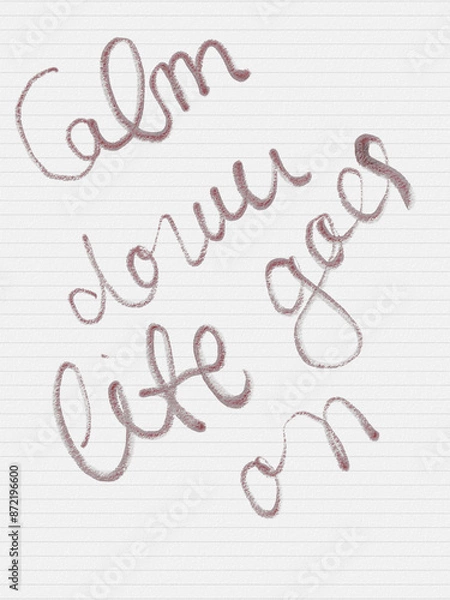 Calm
down
life goes
on
Adobe Stock | #872196600
Adobe Stock